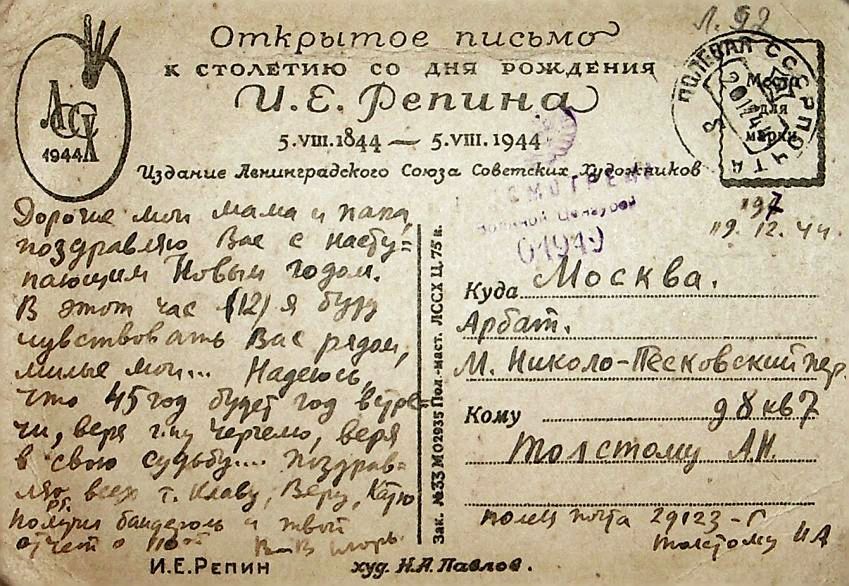 Л. 92
Открытое письмо
К СТОЛЕТИЮ СО ДНЯ РОЖДЕНИЯ
И. Е. Репина
5.VIII.1844 — 5.VIII.1944
Издание Ленинградского Союза Советских Художников
ЛССХ
1944
ПОЛЕВАЯ ПОЧТА
СССР
Место
для
марки
Военной Цензурой
01949
197
19. 12. 44
Дорогие мои мама и папа,
поздравляю Вас с насту=
пающим Новым годом.
В этот час (12) я буду
чувствовать Вас рядом,
милые мои... Надеюсь,
что 45 год будет год встре=
чи, веря Черчелю, веря
в свою судьбу... поздрав=
ляю всех т. Клаву, Веру, Катю
получил бандероль и твой
отчет о Игорь
И.Е.РЕПИН
худ. Н.А. Павлов.
Зак. №33 М02935 Пол.-маст. ЛССХ Ц. 75 к.
Куда Москва.
Арбат.
М. Николо-Песковский пер.
д 8 кв 7
Кому
Толстому А.Н.
полев почта 29123-Г
Толстому ИА